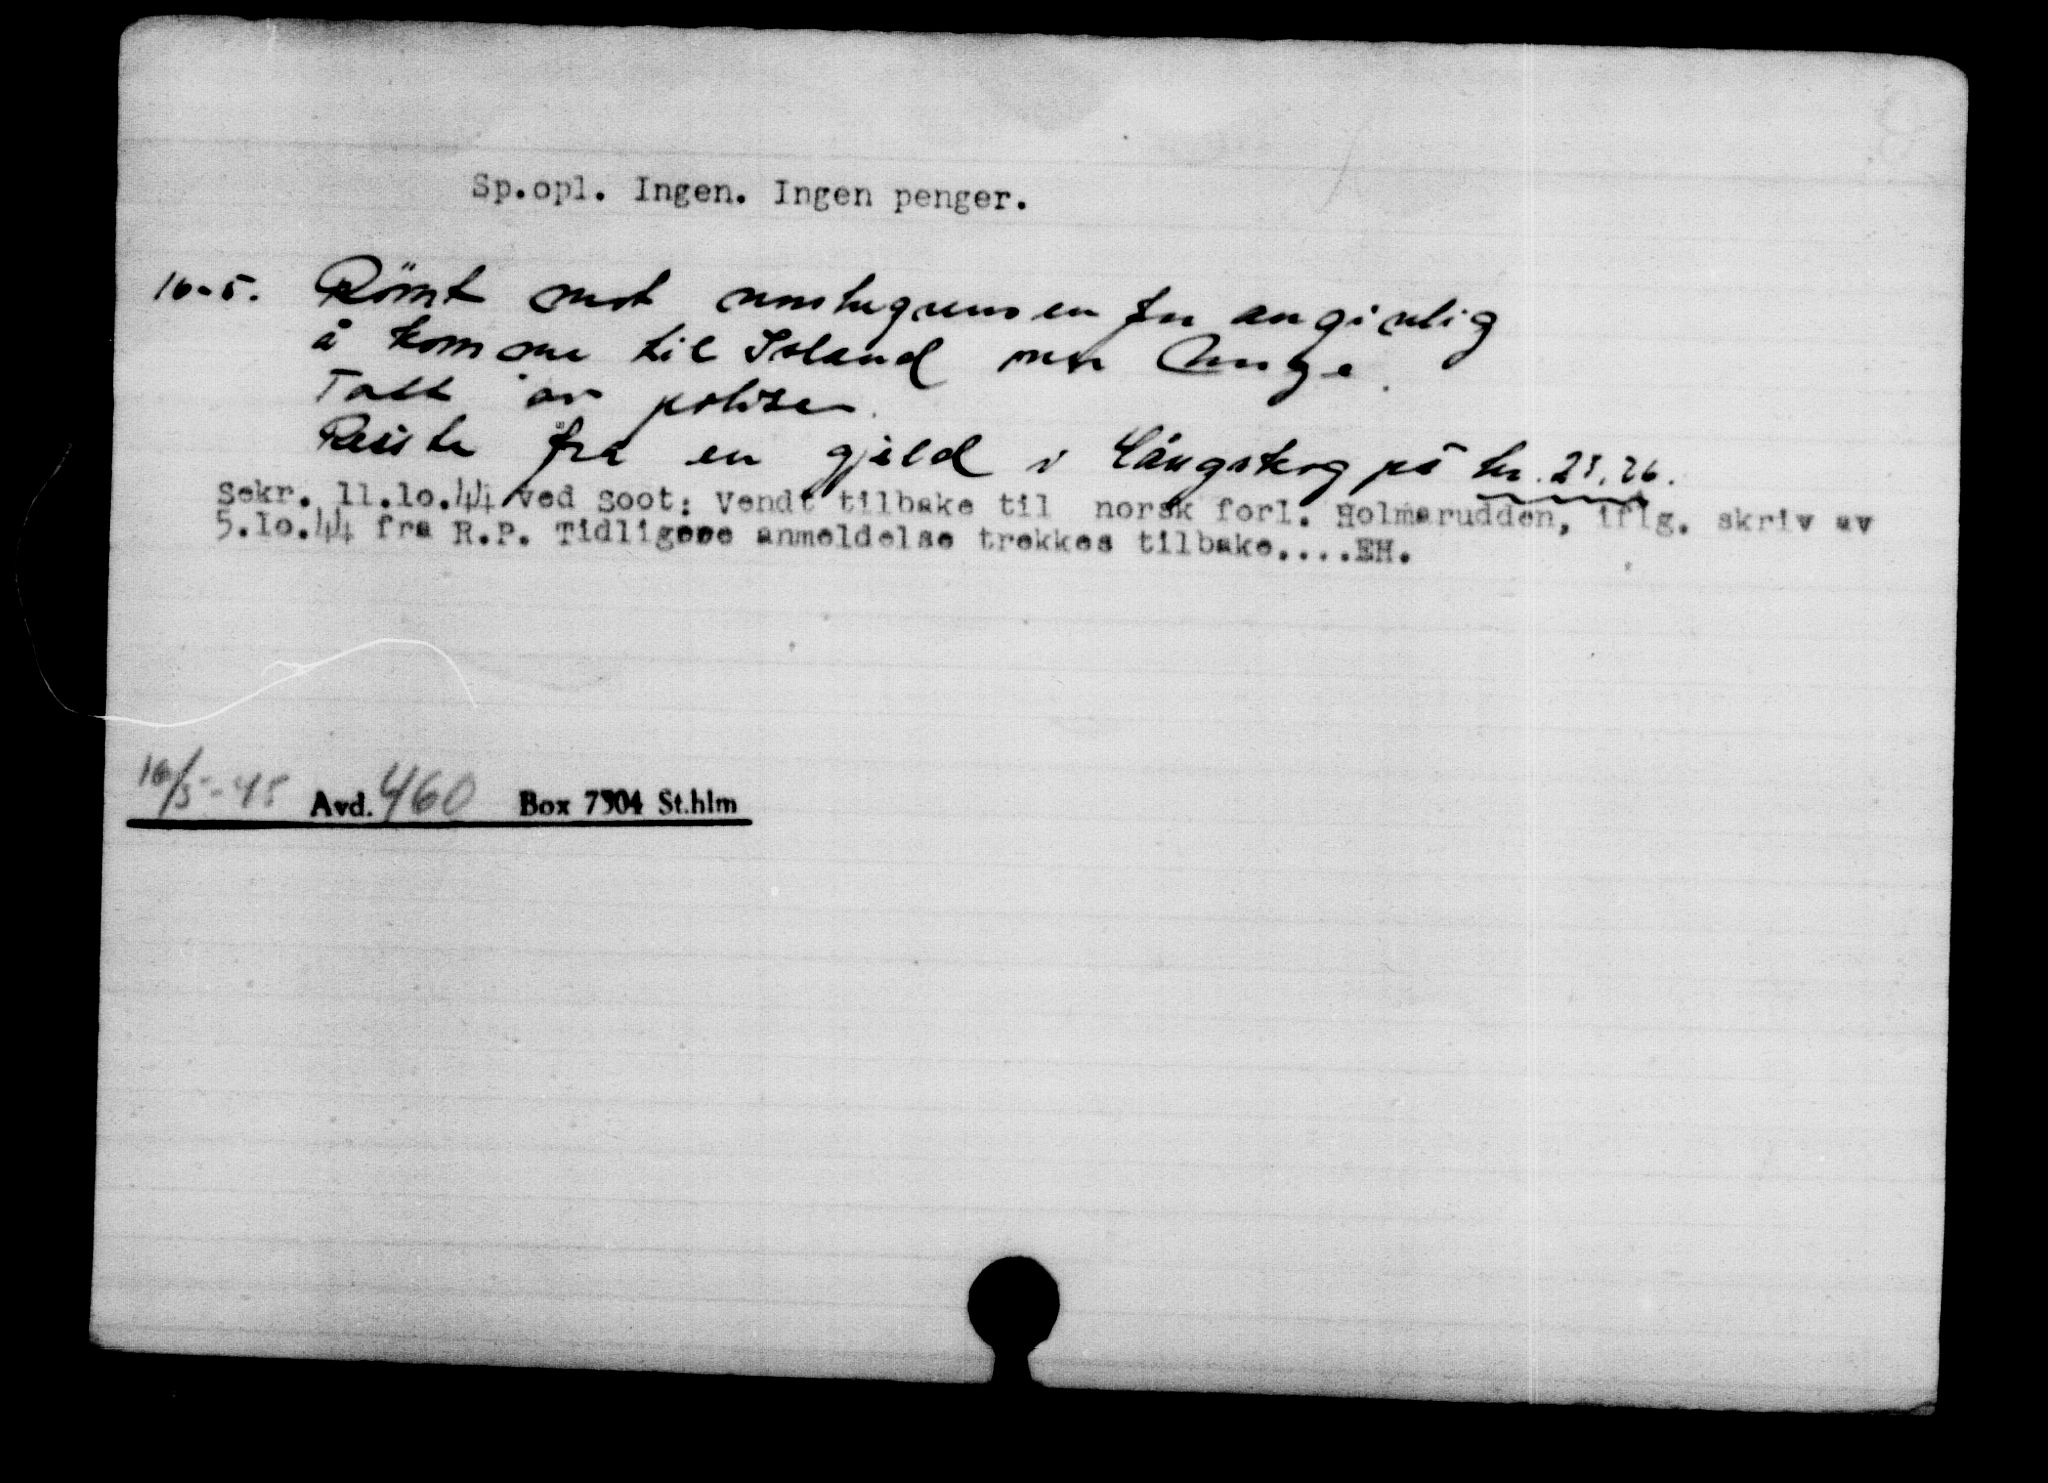 Sp.opl. Ingen. Ingen penger.
10-5. Römt mot norskegrensen for angivelig
å komme til Island over Norge.
Tatt av politiet.
Reiste fra en gjeld i Långskog på kr. 25,26.
Sekr. 11.10.44 ved Soot: Vendt tilbake til norsk forl. Holmarudden, iflg. skriv av
5.10.44 fra R.P. Tidligere anmeldelse trekkes tilbake....EH.
16/5-45 Avd. 460 Box 7304 St.hlm